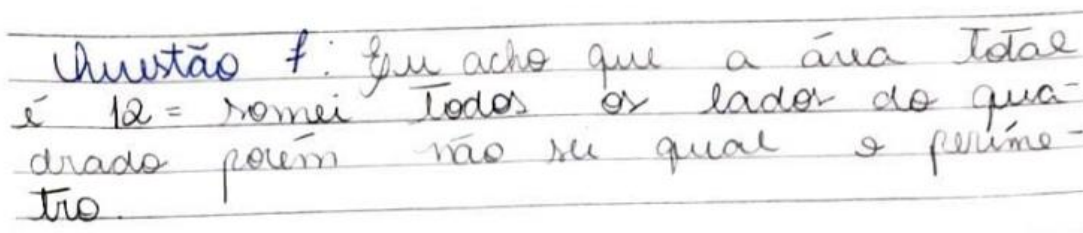 Questão f: Eu acho que a área Total
é 12 = somei Todos os lados do qua-
drado porém não sei qual o períme-
tro.